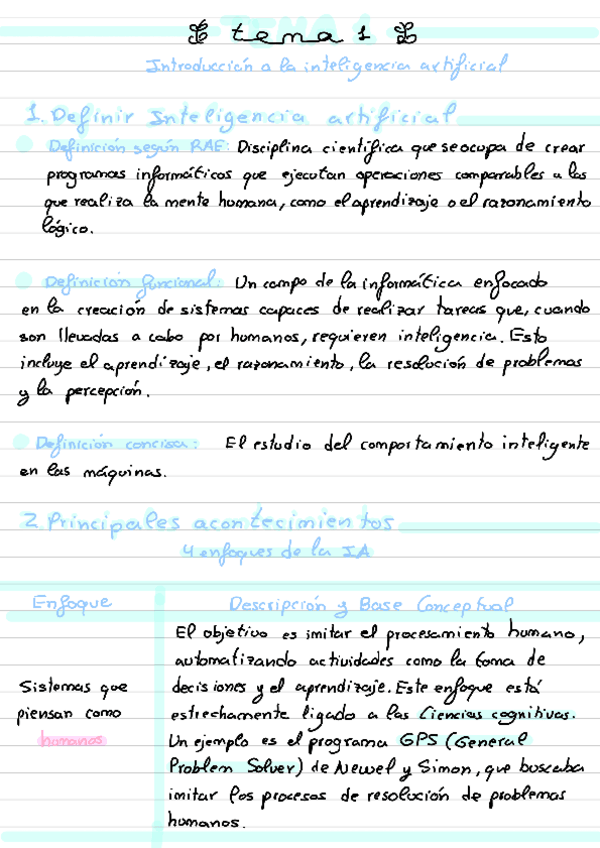 tema 1
Introducción a la inteligencia artificial
1. Definir Inteligencia artificial
Definición según RAE: Disciplina científica que se ocupa de crear
programas informáticos que ejecutan operaciones comparables a las
que realiza la mente humana, como el aprendizaje o el razonamiento
lógico.
Definición funcional: Un campo de la informática enfocado
en la creación de sistemas capaces de realizar tareas que, cuando
son llevadas a cabo por humanos, requieren inteligencia. Esto
incluye el aprendizaje, el razonamiento, la resolución de problemas
y la percepción.
Definición concisa: El estudio del comportamiento inteligente
en las máquinas.
2 Principales acontecimientos
4 enfoques de la IA
Enfoque
Descripción y Base Conceptual
Sistemas que
piensan como
humanos
El objetivo es imitar el procesamiento humano,
automatizando actividades como la toma de
decisiones y el aprendizaje. Este enfoque está
estrechamente ligado a las Ciencias cognitivas.
Un ejemplo es el programa GPS (General
Problem Solver) de Newel y Simon, que buscaba
imitar los procesos de resolución de problemas
humanos.